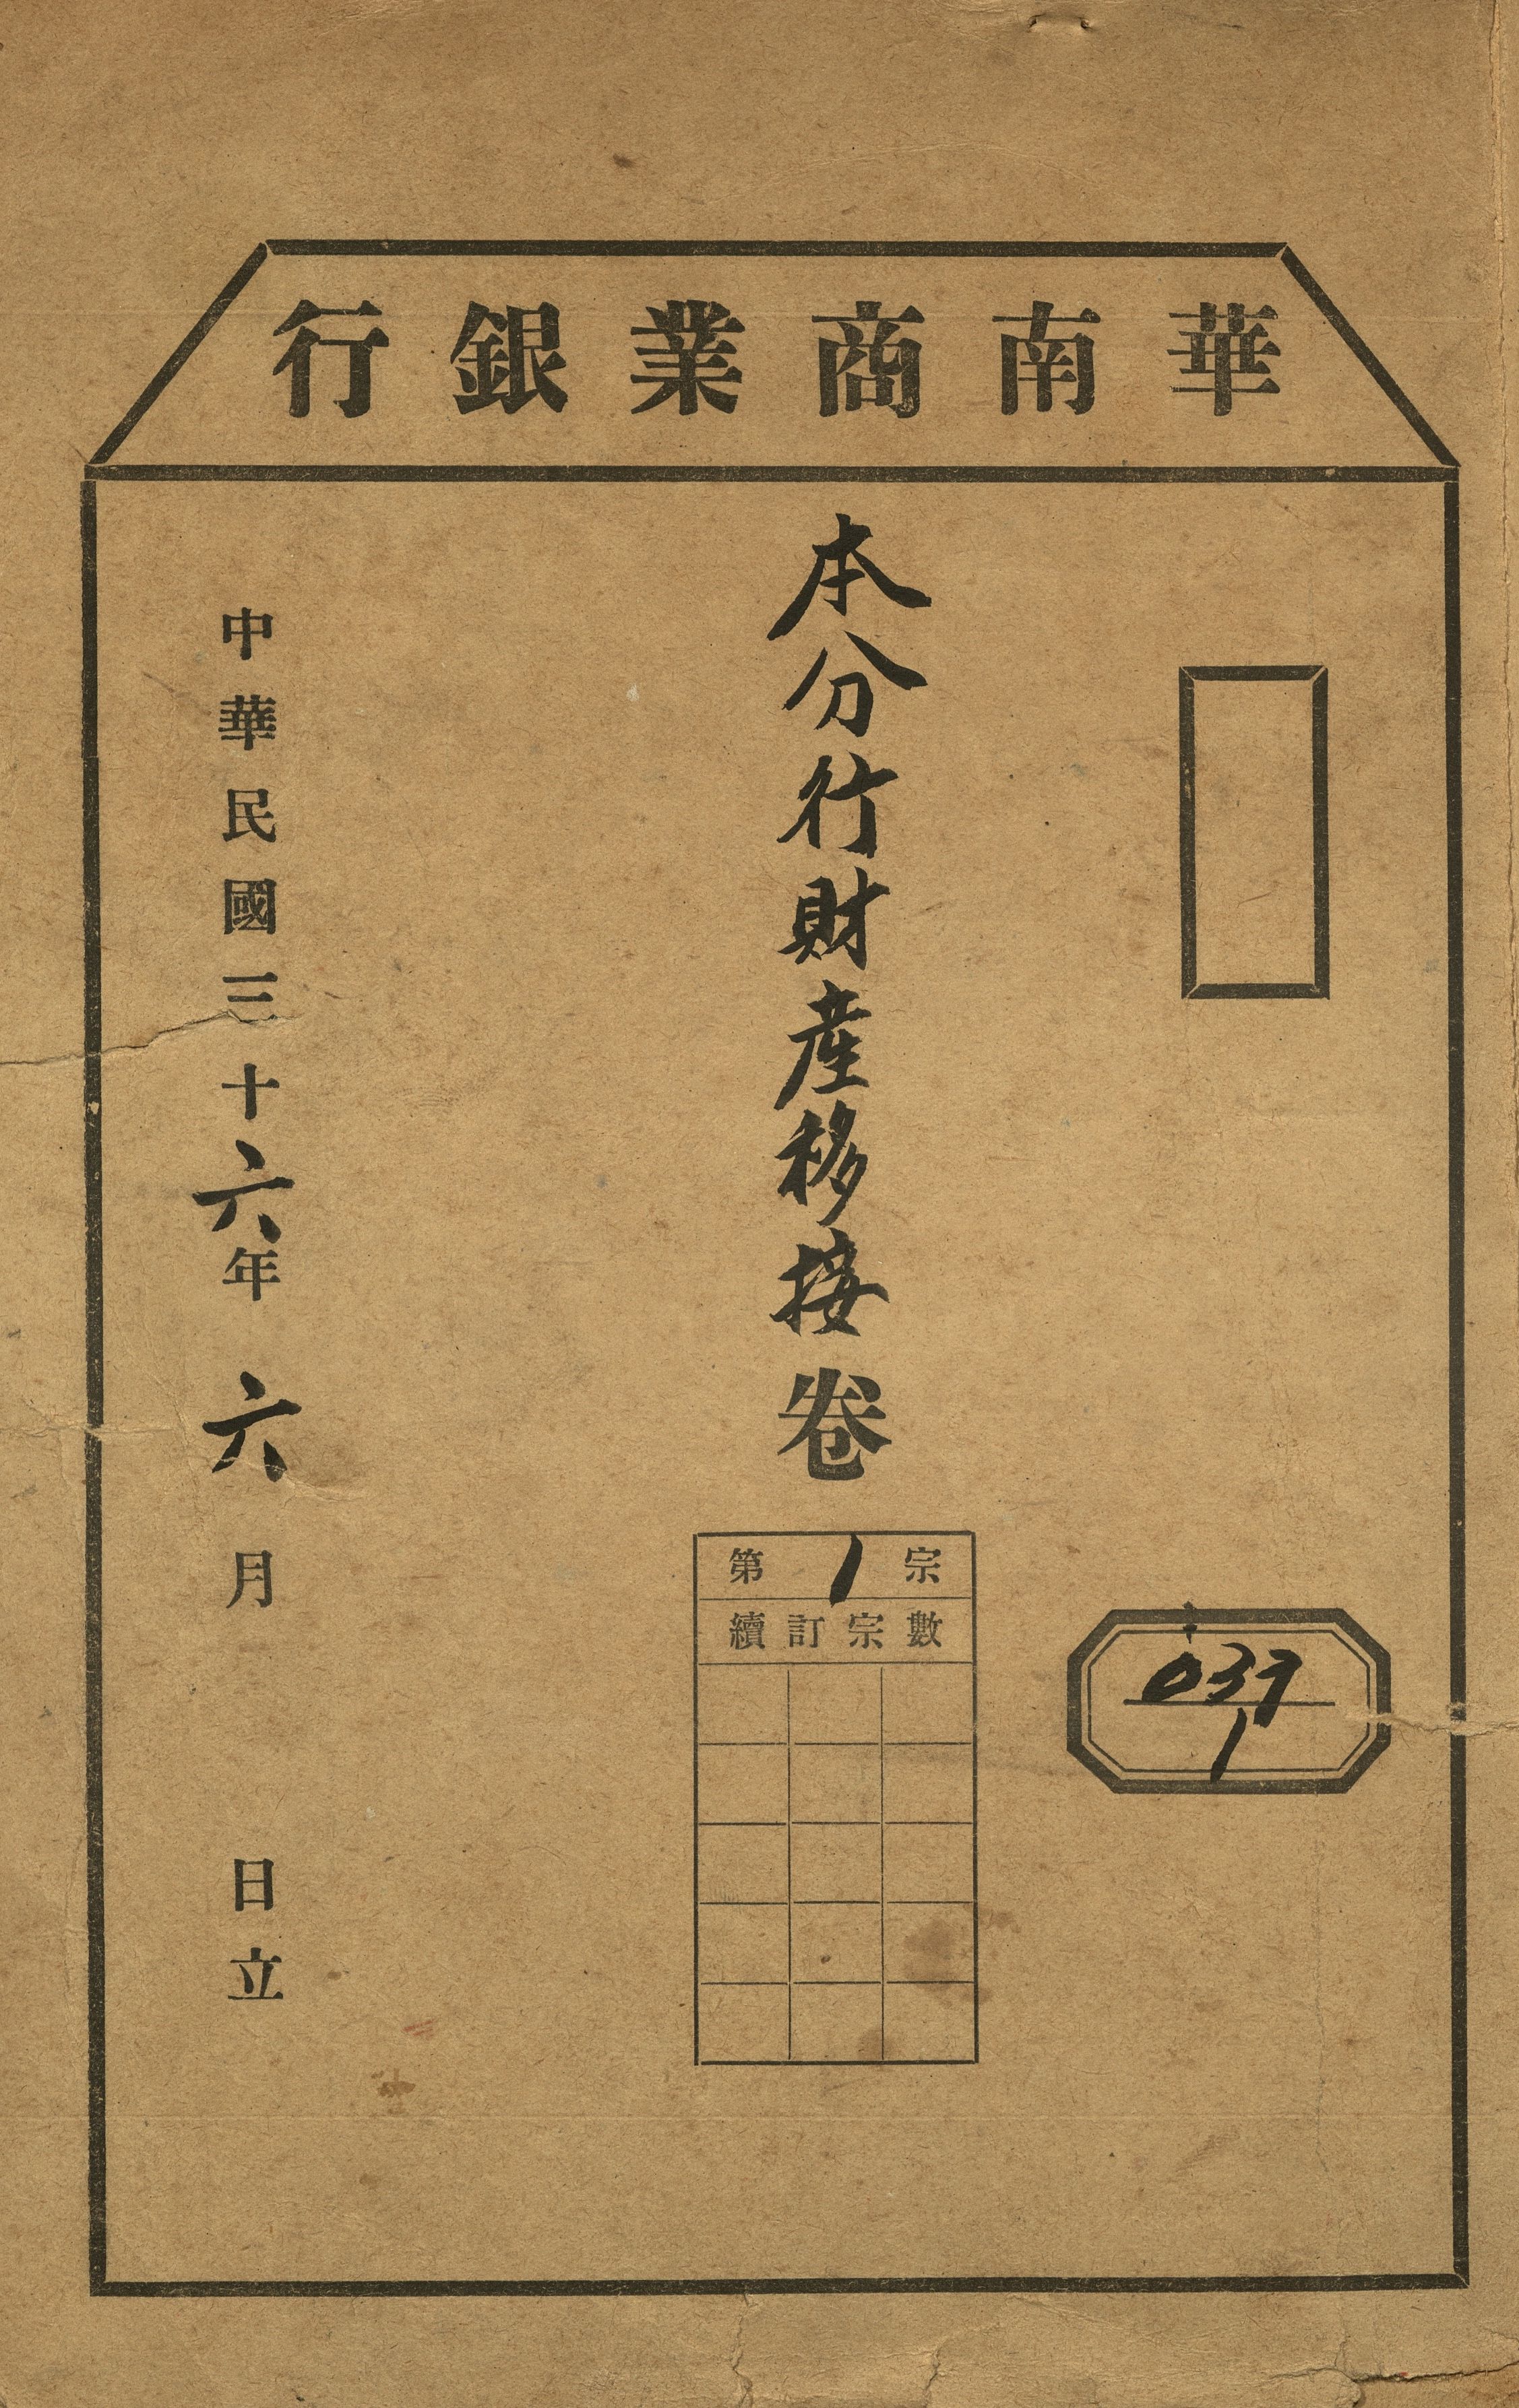 華南商業銀行
本分行財產移接卷
第1宗
續訂宗數
037
1
中華民國三十六年六月 日立